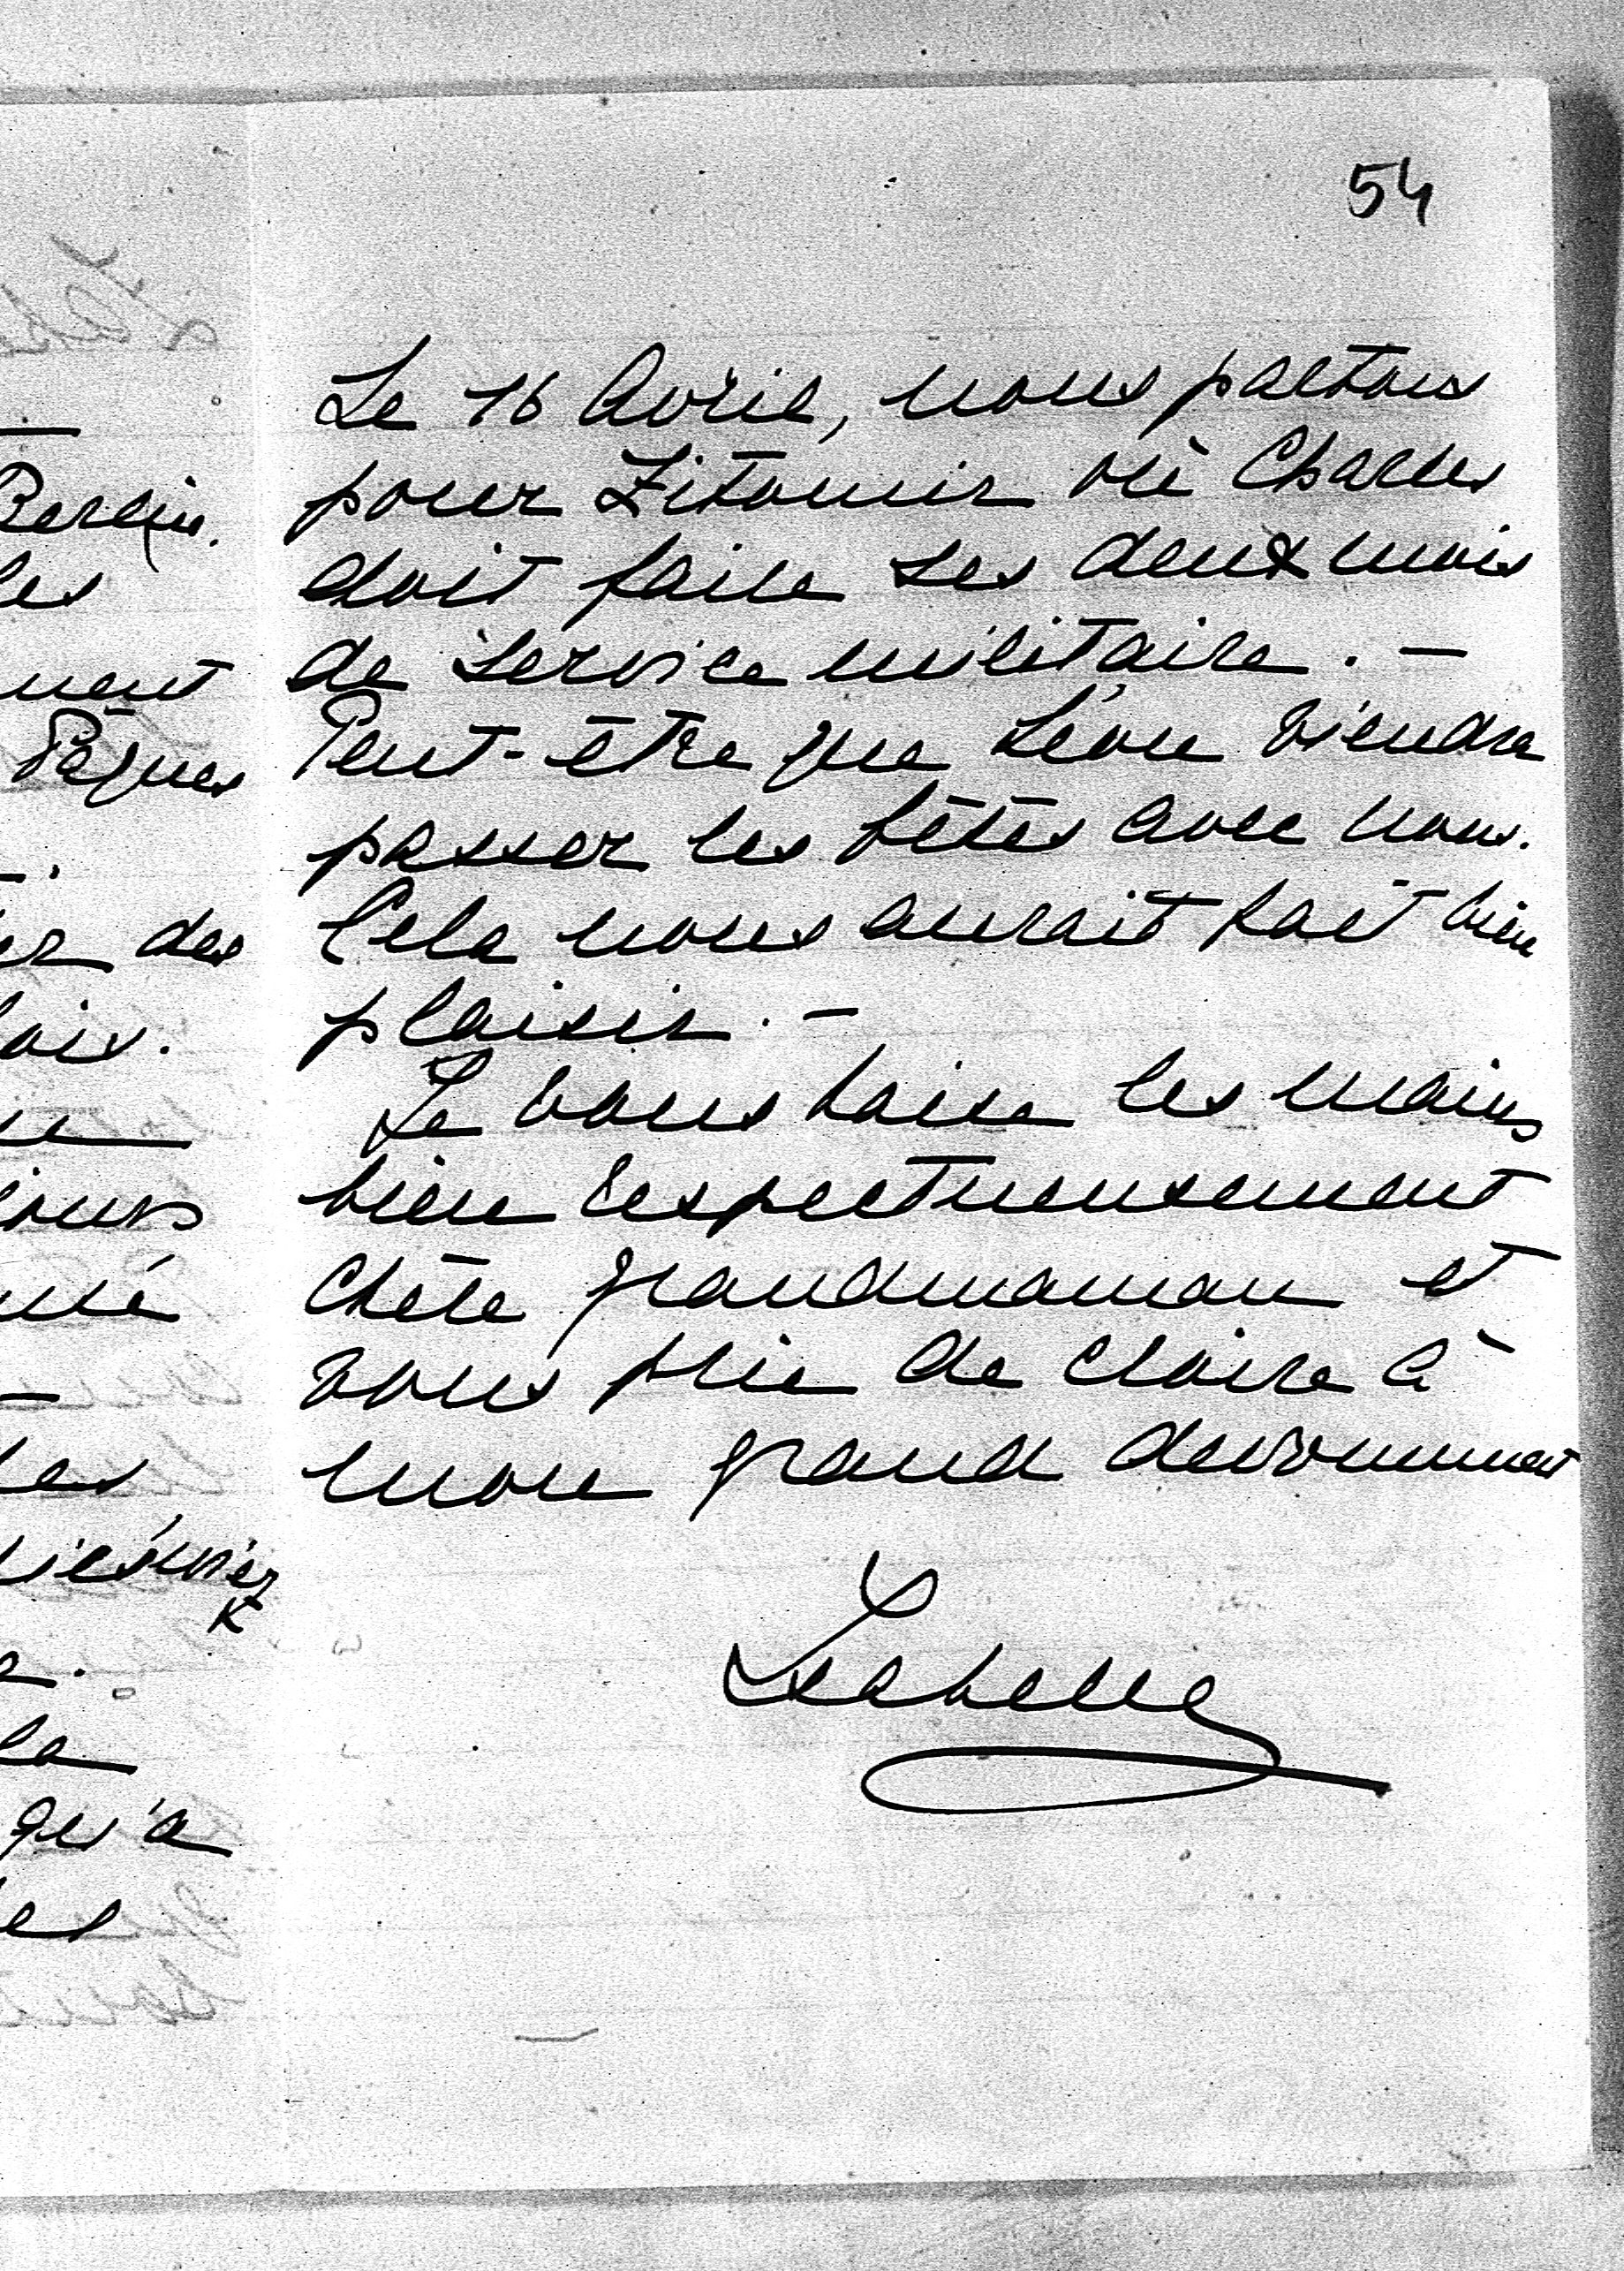 54
Le 16 Avril, nous partons
pour Zitomir où Charles
doit faire ses deux mois
de service militaire. –
Peut-être que Léon viendra
passer les fêtes avec nous.
Cela nous aurait fait bien
plaisir. –
Je vous baise les mains
bien respectueusement
chère grandmaman et
vous prie de cloire à
mon grand devouement
Isabelle
Berlin.
les
ment
Pâques
er des
lais.
jours
les
la
qu'a
les